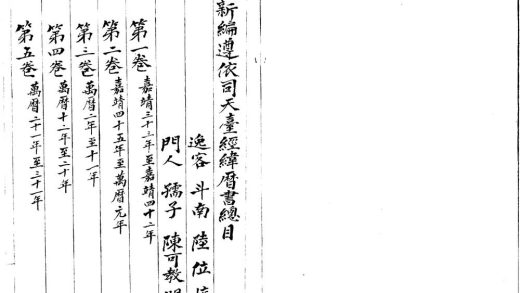 新編遵依司天臺經緯曆書總目
逸客 斗南 陸 位
門人 孺子 陳可教
第一卷 嘉靖三十三年至嘉靖四十二年
第二卷 嘉靖四十五年至萬曆元年
第三卷 萬曆二年至十一年
第四卷 萬曆十二年至二十年
第五卷 萬曆二十一年至三十一年